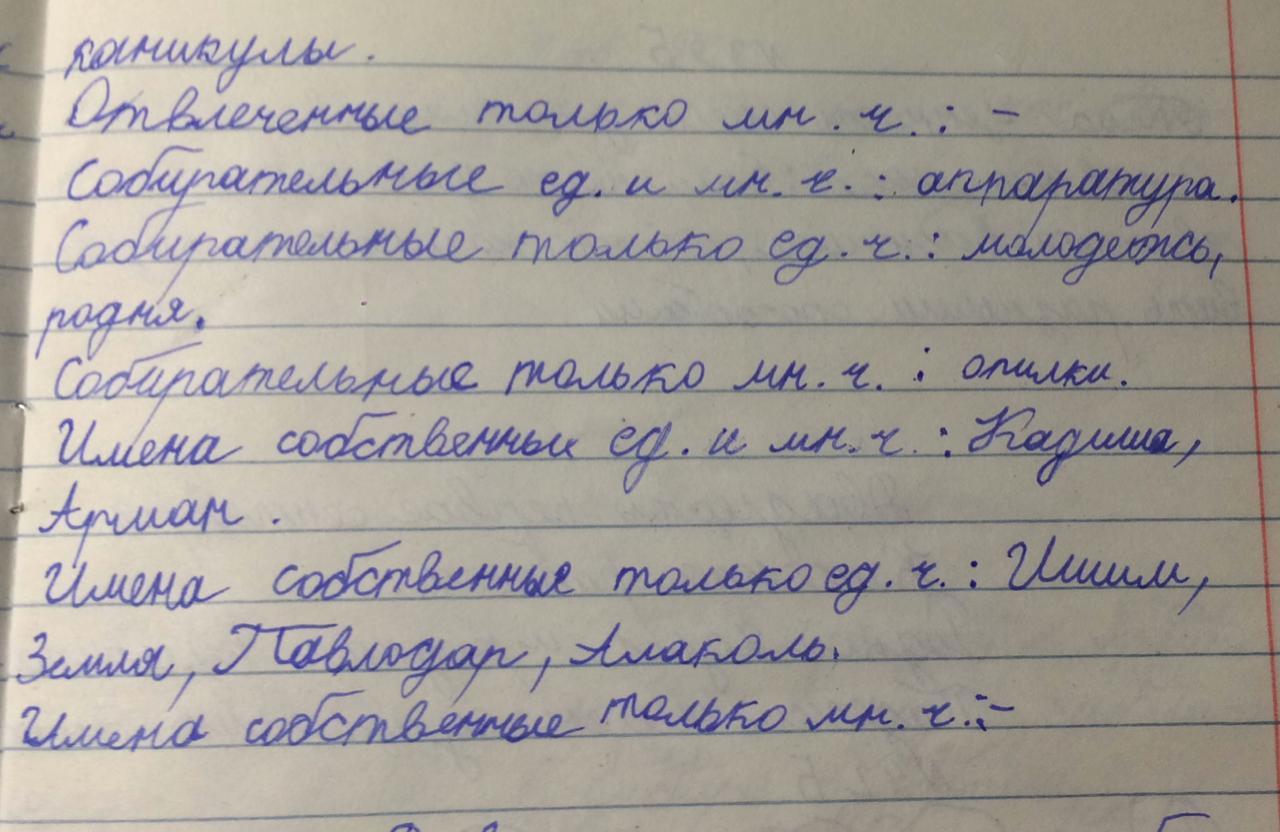 каникулы.
Отвлеченные только мн. ч. : -
Собирательные ед. и мн. ч. : аппаратура.
Собирательные только ед. ч. : молодежь,
родня.
Собирательные только мн. ч. : опилки.
Имена собственные ед. и мн. ч. : Кадиша,
Арман.
Имена собственные только ед. ч. : Ишим,
Земля, Павлодар, Алаколь.
Имена собственные только мн. ч. : -